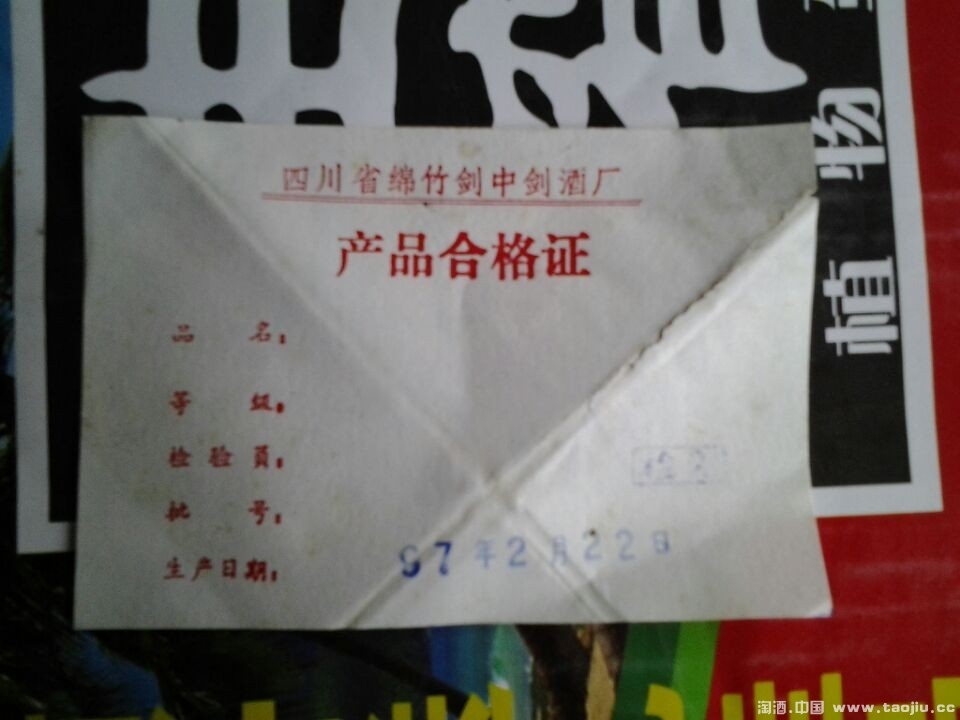 四川省绵竹剑中剑酒厂
产品合格证
品 名:
等 级:
检验员:
批 号:
生产日期: 97年2月22日
植物
淘酒.中国 www.taojiu.cc